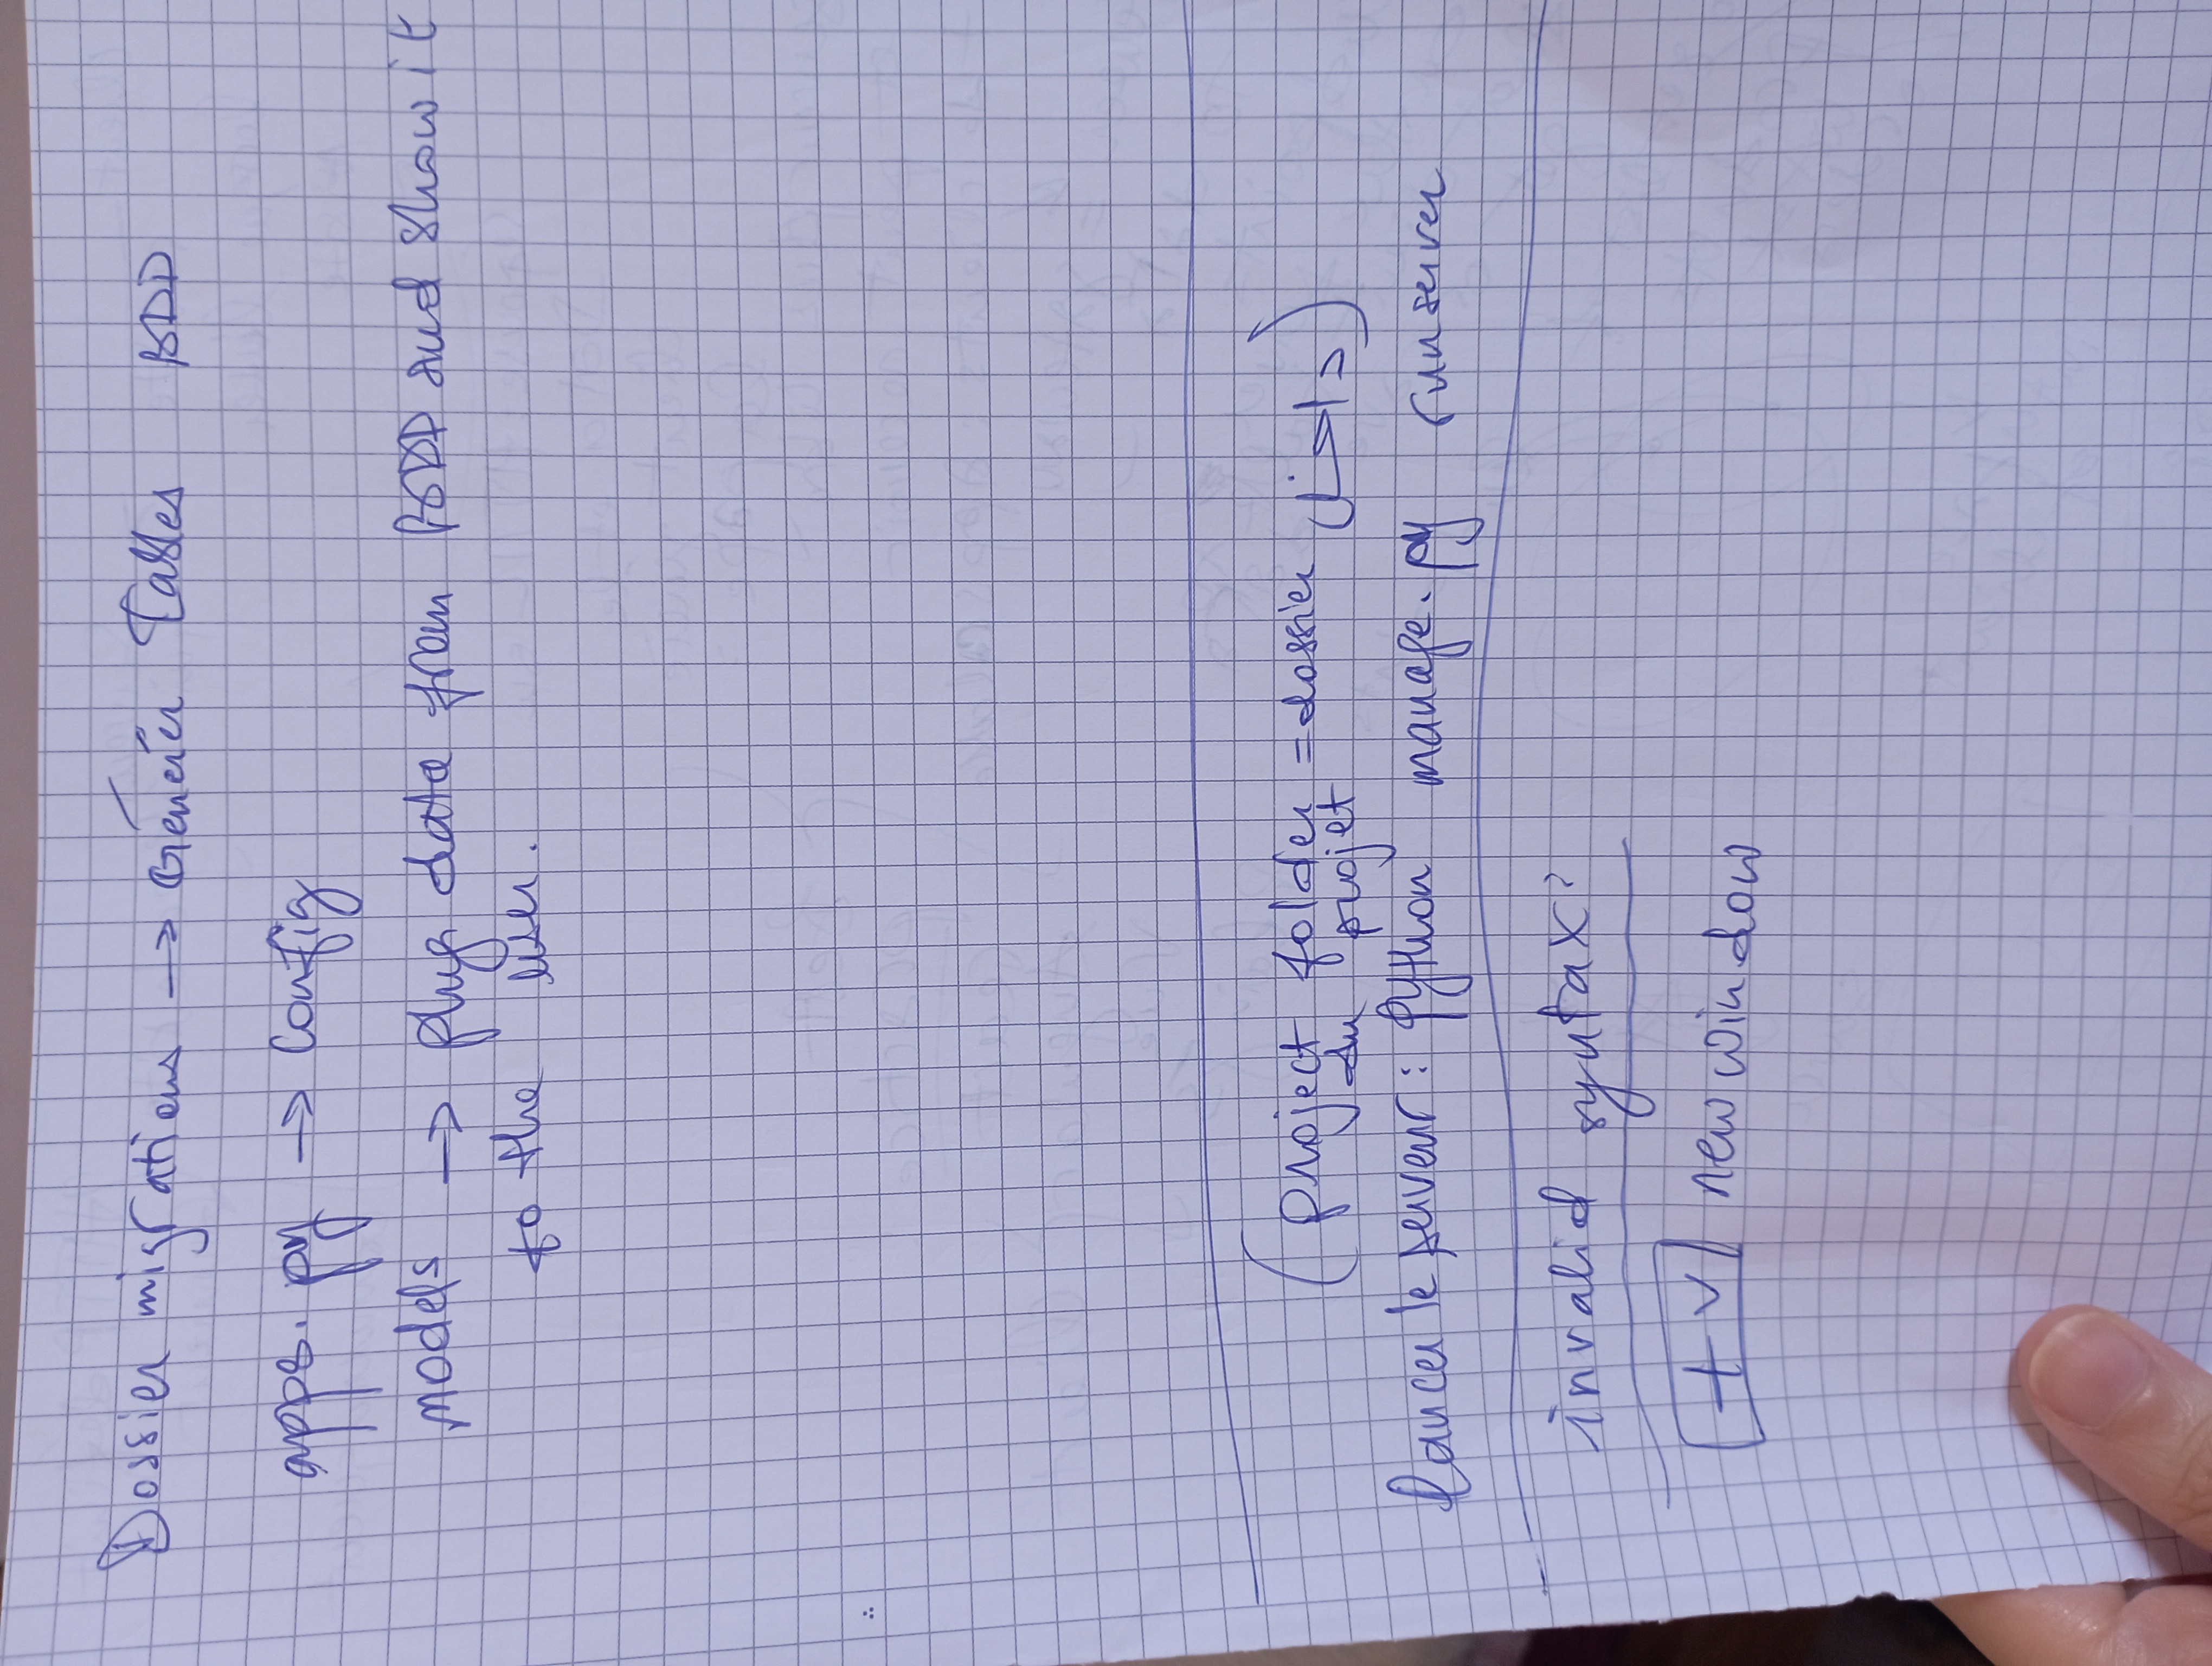 Dossier migrations → Générer Tables BDD
apps.py → Config
models → plug data from BDD and show it
to the user.
(project folder = dossier داخل)
du projet
lancer le serveur: Python manage.py runserver
invalid syntax?
+ v new window